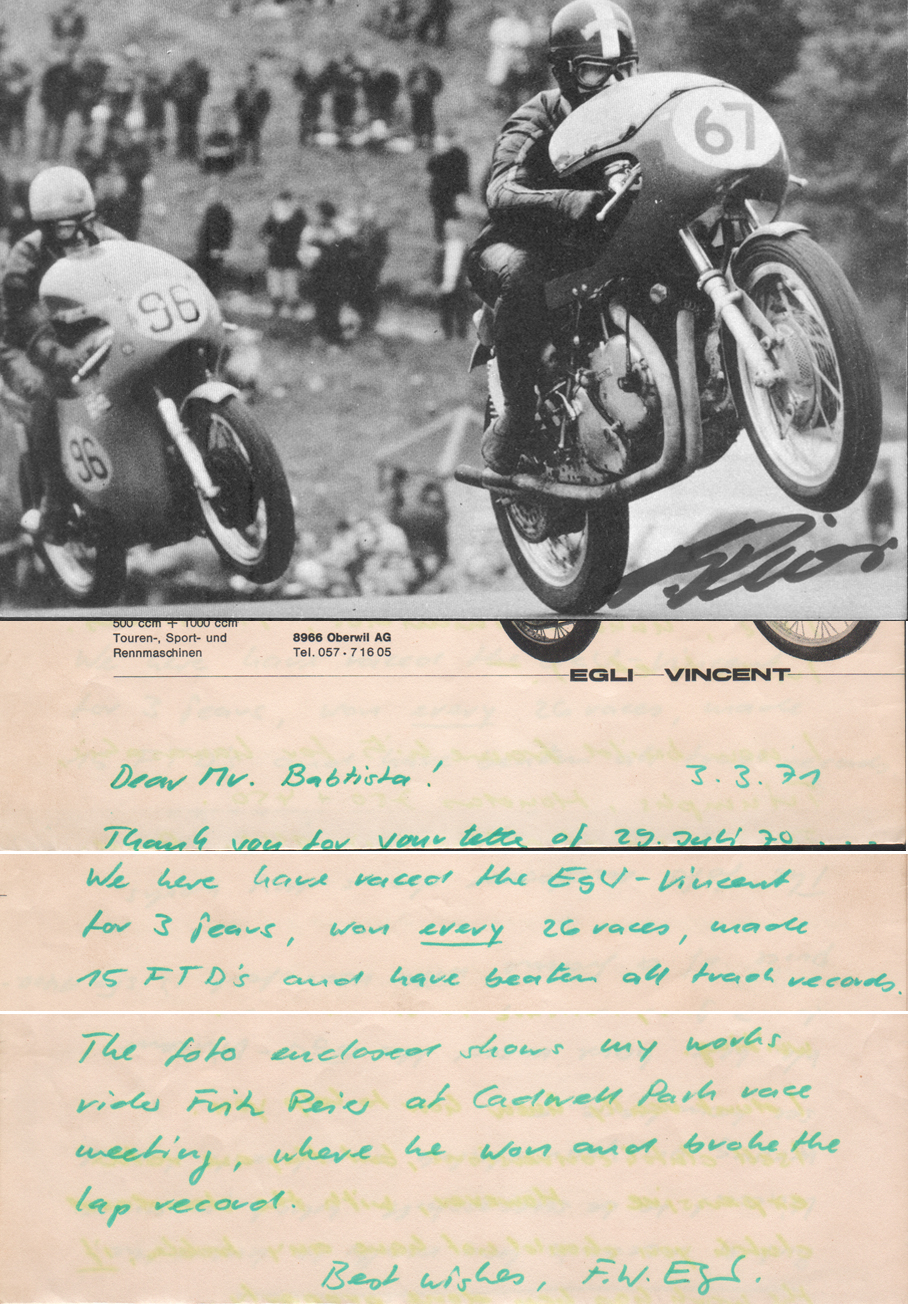 67
96
96
500 ccm + 1000 ccm
Touren-, Sport- und
Rennmaschinen
8966 Oberwil AG
Tel. 057 · 7 16 05
EGLI VINCENT
Dear Mr. Babtista!
3. 3. 71
Thank you for your lette of 29. Juli 70 ....
We here have raced the Egli-Vincent
for 3 jears, won every 26 races, made
15 FTD's and have beaten all track records.
The foto enclosed shows my works
rider Fritz Peier at Cadwell Park race
meeting, where he won and broke the
lap record.
Best wishes, F.W. Egli.